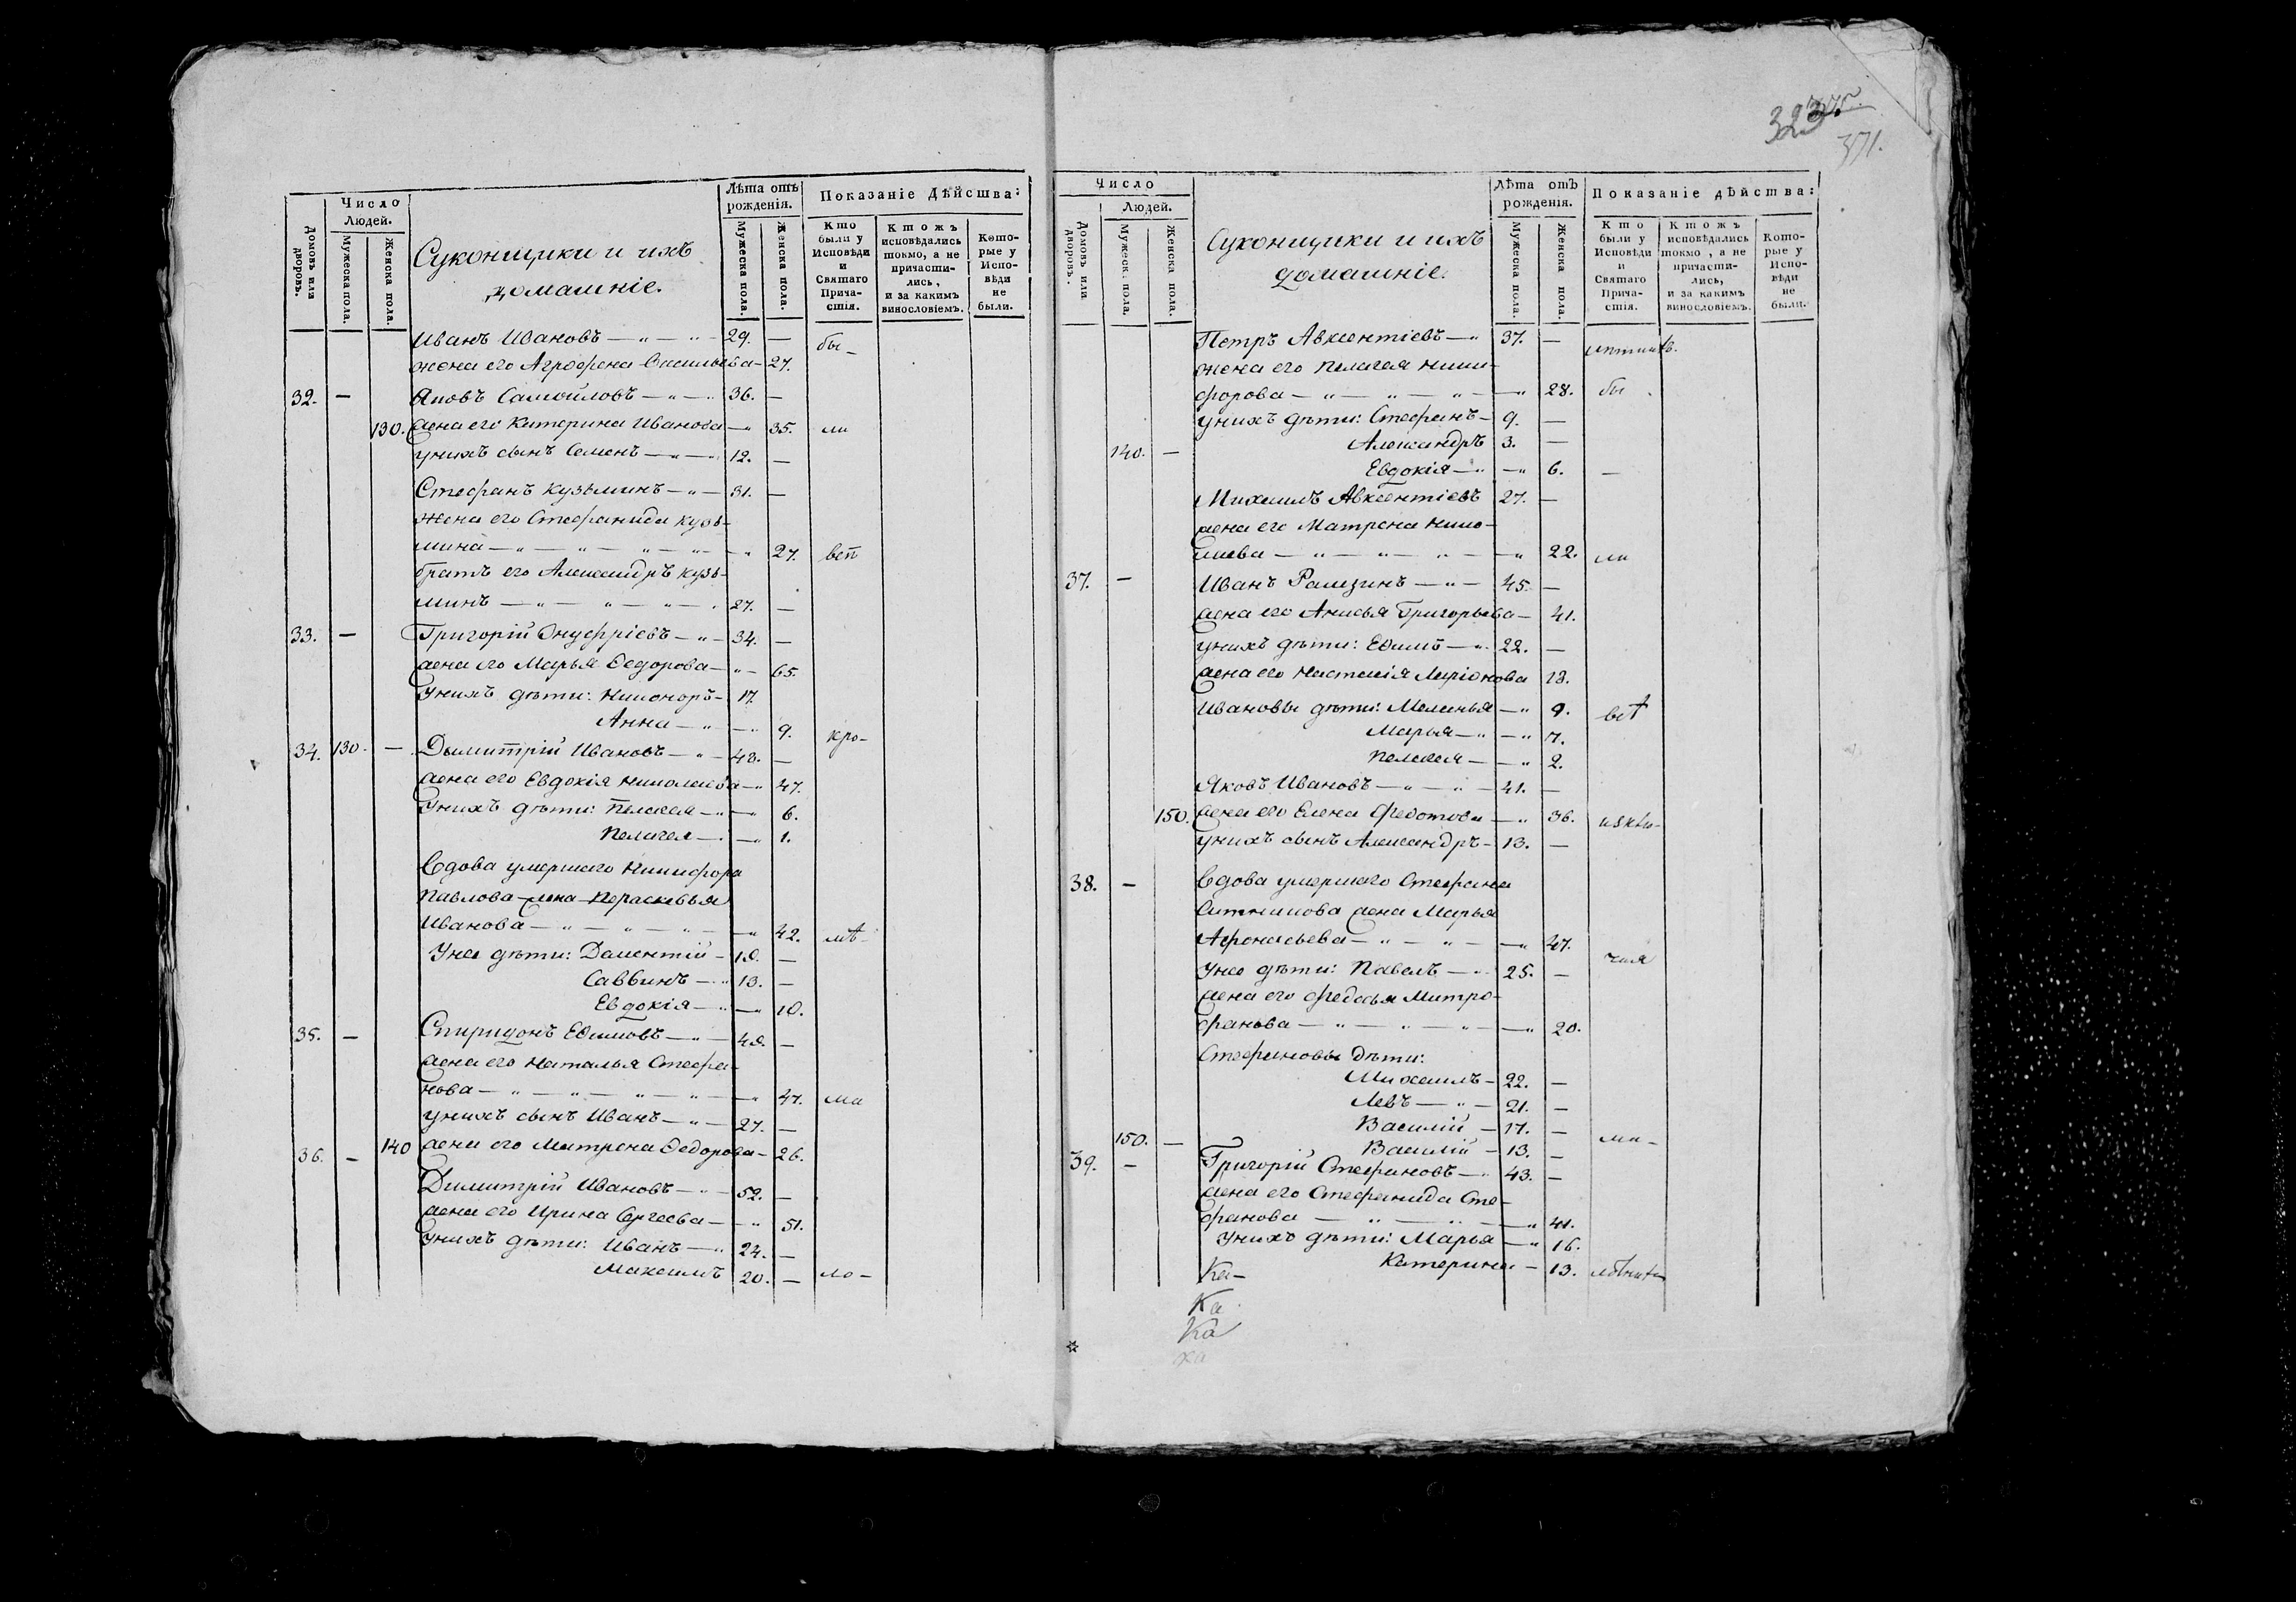 Число
Людей.
Домовъ или дворовъ.
Мужеска пола.
Женска пола.
Суконщики и ихъ
домашніе.
Лѣта отъ
рожденія.
Мужеска пола.
Женска пола.
Показаніе Дѣйства:
Кто
были у
Исповѣди
и
Святаго
Прича-
стія.
Ктожъ
исповѣдались
токмо, а не
причасти-
лись,
и за какимъ
винословіемъ.
Кото-
рые у
Испо-
вѣди
не
были.
Иванъ Ивановъ 29. — бы-
жена его Агрофена Васильева 27.
32. — Яковъ Самойловъ 36. —
130. жена его Катерина Иванова 35. ли
у нихъ сынъ Семенъ 12. —
Стефанъ Кузьминъ 31. —
жена его Стефанида Кузь-
мина 27.
братъ его Александръ Кузь-
минъ 27. —
33. — Григорій Онуфріевъ 34. —
жена его Марья Ѳедорова 65.
У нихъ дѣти: Никоноръ 17.
Анна 9. кро-
34. 130. — Димитрій Ивановъ 48. —
жена его Евдокія Николаева 47.
У нихъ дѣти: Пелагея 6.
Пелагея 1.
Вдова умершаго Никифора
Павлова жена Парасковья
Иванова 42. мѣ-
У нее дѣти: Дементій 18. —
Саввинъ 13. —
Евдокія 10.
35. — Спиридонъ Ефимовъ 48. —
жена его Наталья Стефа-
нова 47. ма
у нихъ сынъ Иванъ 27. —
140 жена его Матрена Ѳедорова 26.
36. — Димитрій Ивановъ 52. —
жена его Ирина Сергеева 51.
У нихъ дѣти: Иванъ 24. —
Максимъ 20. — ло-
323
371.
Число
Людей.
Домовъ или дворовъ.
Мужеск. пола.
Женска пола.
Суконщики и ихъ
домашніе.
Лѣта отъ
рожденія.
Мужеска пола.
Женска пола.
Показаніе дѣйства:
Кто
были у
Исповѣди
и
Святаго
Прича-
стія.
Ктожъ
исповѣдались
токмо, а не
причасти-
лись,
и за какимъ
винословіемъ.
Кото-
рые у
Испо-
вѣди
не
были.
Петръ Авксентіевъ 37. —
жена его Пелагея Ники-
форова 28. бы
у нихъ дѣти: Стефанъ 9. —
140. — Александръ 3. —
Евдокія 6. —
Михаилъ Авксентіевъ 27. —
жена его Матрена Нико-
лаева 22. ли
37. — Иванъ Рамзинъ 45. —
жена его Анисья Григорьева 41.
у нихъ дѣти: Ефимъ 22. —
жена его Настасія Ларіонова 18.
Ивановы дѣти: Меланья 9.
Марья 7.
Пелагея 2.
Яковъ Ивановъ 41. —
150. жена его Елена Федотова 36.
у нихъ сынъ Александръ 13. —
38. — Вдова умершаго Стефана
Ситникова жена Марья
Афонасьева 47.
У нее дѣти: Павелъ 25. —
жена его Федосья Митро-
фанова 20.
Стефановы дѣти:
Михаилъ 22. —
Левъ 21. —
Василій 17. —
150. — Василій 13. — ма-
39. — Григорій Стефановъ 43. —
жена его Стефанида Сте-
фанова 41.
У нихъ дѣти: Марья 16.
Катерина 13.
Ка-
Ка
Ка
ка